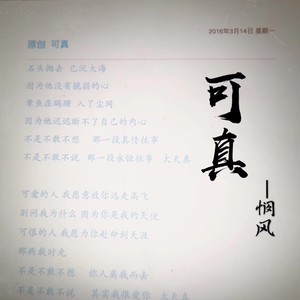 2016年3月14日 星期一
原创 可真
石头抛去 已沉大海
因为她没有脆弱的心
章鱼在蹒跚 入了尘网
因为她远远断不了自己的内心
不是不敢不想 那一段真情往事
不是不敢不说 那一段永恒往事 太天真
可爱的人 我愿意放你远走高飞
别问我为什么 因为你是我的天使
可恨的人 我愿为你赴命到天涯
那两载时光
不是不敢不想 你人离我而去
不是不敢不说 其实我很爱你 太天真
可真
—悯风